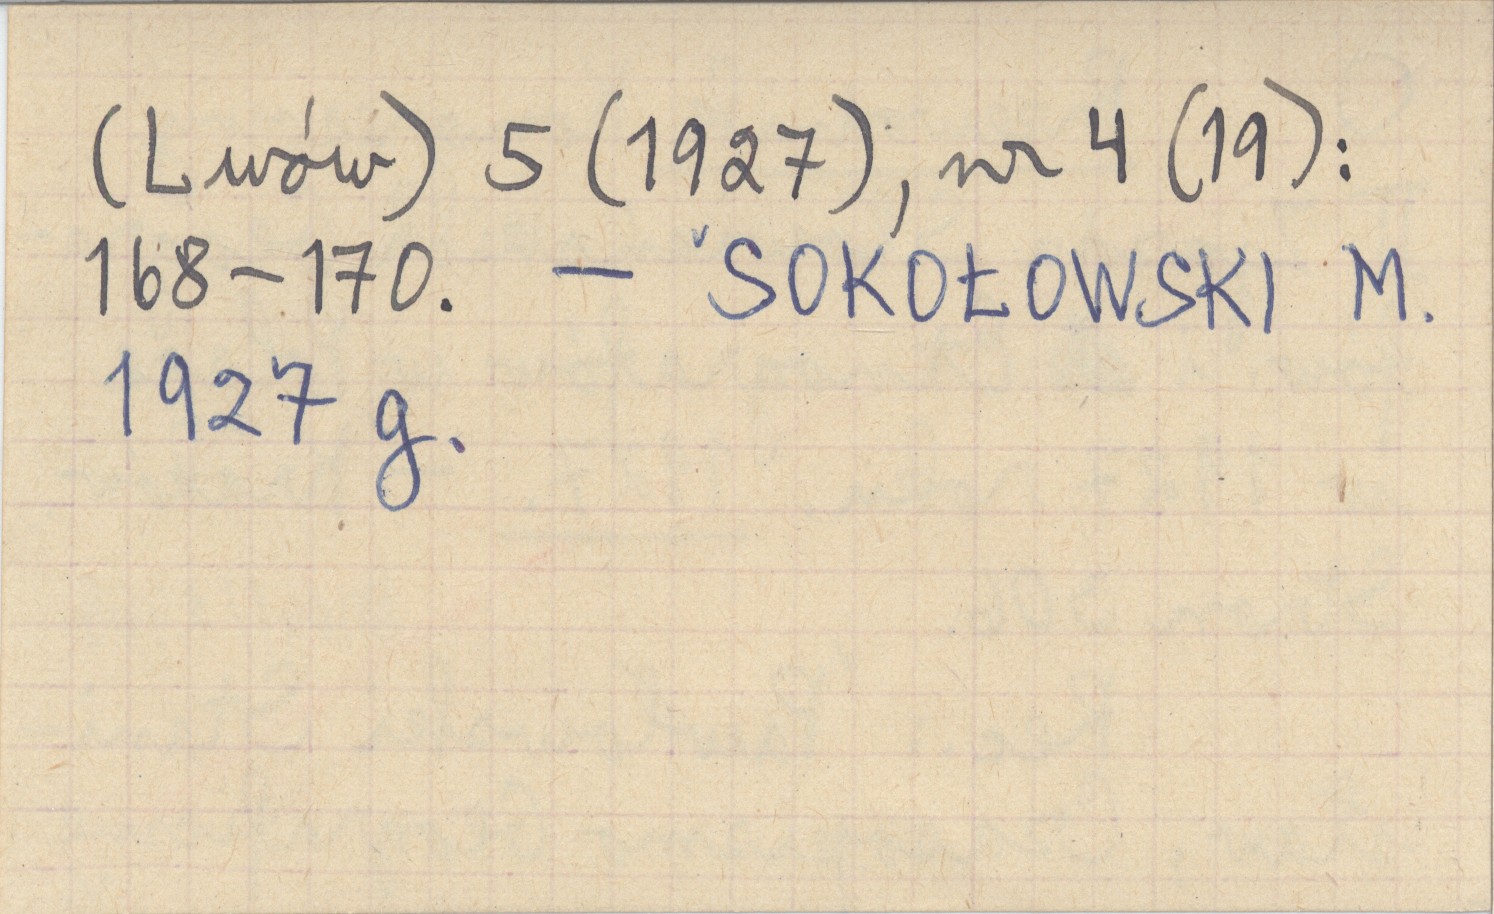 (Lwów) 5 (1927), nr 4 (19):
168–170. — SOKOŁOWSKI M.
1927 g.